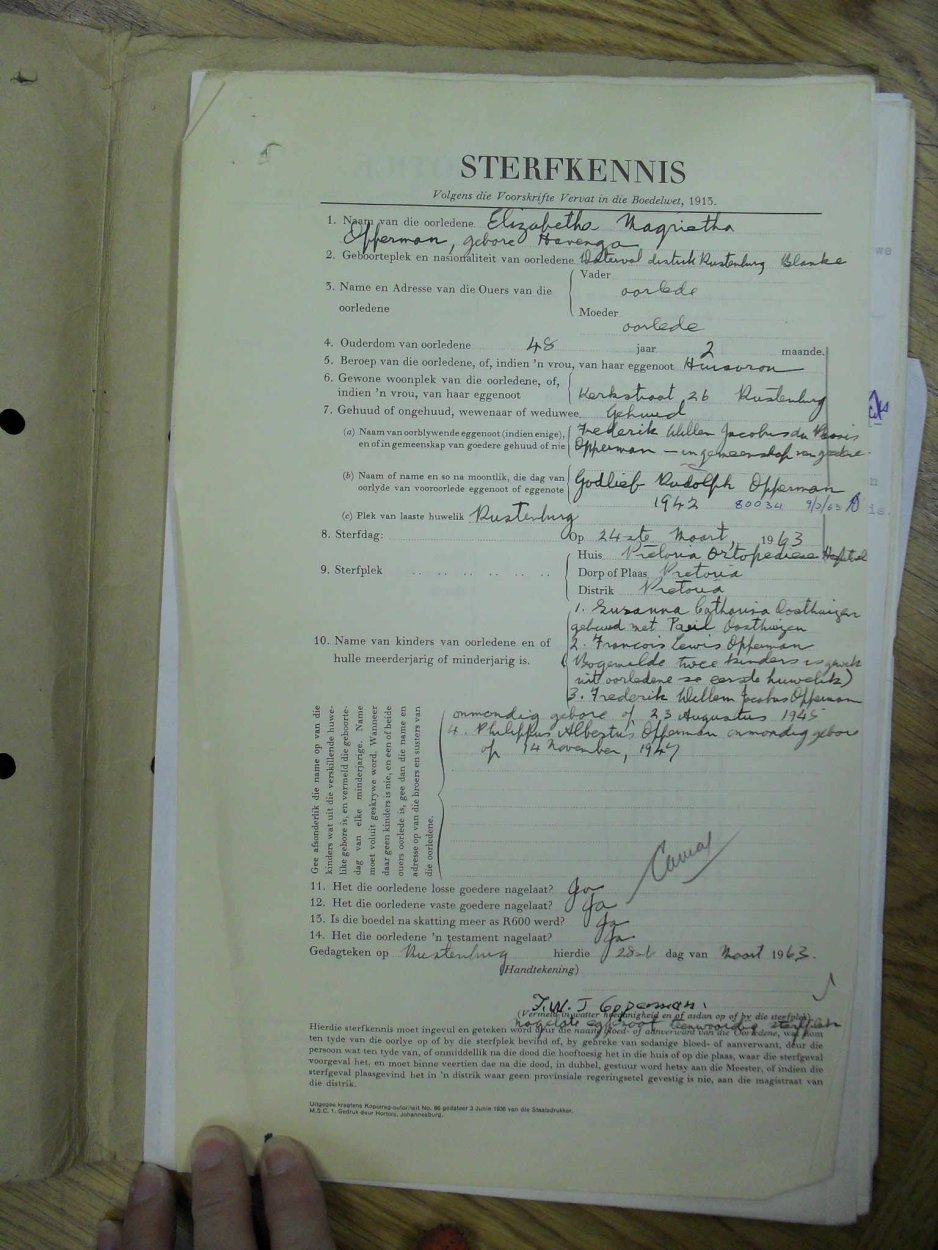 STERFKENNIS
Volgens die Voorskrifte Vervat in die Boedelwet, 1913.
1. Naam van die oorledene Elizabetha Magrietha
Opperman, gebore Havenga
2. Geboorteplek en nasionaliteit van oorledene Waterval distrik Rustenburg Blanke
3. Name en Adresse van die Ouers van die oorledene
Vader
oorlede
Moeder
oorlede
4. Ouderdom van oorledene 48 jaar 2 maande.
5. Beroep van die oorledene, of, indien 'n vrou, van haar eggenoot Huisvrou
6. Gewone woonplek van die oorledene, of,
indien 'n vrou, van haar eggenoot Kerkstraat 26 Rustenburg
7. Gehuud of ongehuud, wewenaar of weduwee Gehuud
(a) Naam van oorblywende eggenoot (indien enige),
en of in gemeenskap van goedere gehuud of nie
Frederik Willem Jacobus du Ploois
Opperman – in gemeenskap van goedere.
(b) Naam of name en so na moontlik, die dag van
oorlyde van vooroorlede eggenoot of eggenote
Godlief Rudolph Opperman
1942 80034 9/3/63
(c) Plek van laaste huwelik Rustenburg
8. Sterfdag: Op 24ste Maart, 1963
9. Sterfplek
Huis Pretoria Ortopediese Hospitaal
Dorp of Plaas Pretoria
Distrik Pretoria
10. Name van kinders van oorledene en of
hulle meerderjarig of minderjarig is.
1. Susanna Catharina Oosthuizen
gehuud met Paul Oosthuizen
2. Francois Lewis Opperman
(Bogemelde twee kinders is gewek
uit oorledene se eerste huwelik)
3. Frederik Willem Jacobus Opperman
onmondig gebore op 23 Augustus 1945
4. Philippus Albertus Opperman onmondig gebore
op 14 November, 1947
Gee afsonderlik die name op van die
kinders wat uit die verskillende huwe-
like gebore is, en vermeld die geboorte-
dag van elke minderjarige. Name
moet voluit geskrywe word. Wanneer
daar geen kinders is nie, en een of beide
ouers oorlede is, gee dan die name en
adresse op van die broers en susters van
die oorledene.
11. Het die oorledene losse goedere nagelaat? Ja
12. Het die oorledene vaste goedere nagelaat? Ja
13. Is die boedel na skatting meer as R600 werd? Ja
14. Het die oorledene 'n testament nagelaat? Ja
Gedagteken op Rustenburg hierdie 28ste dag van Maart 1963.
(Handtekening)
F.W.J Opperman.
(Vermeld in watter hoedanigheid en of asdan op of by die sterfplek)
nagelate eggenoot teenwoordig sterfplek
Hierdie sterfkennis moet ingevul en geteken word deur die naaste bloed- of aanverwant van die Oorledene, wat kom
ten tyde van die oorlye op of by die sterfplek bevind of, by gebreke van sodanige bloed- of aanverwant, deur die
persoon wat ten tyde van, of onmiddelik na die dood die hooftoesig het in die huis of op die plaas, waar die sterfgeval
voorgeval het, en moet binne veertien dae na die dood, in dubbel, gestuur word hetsy aan die Meester, of indien die
sterfgeval plaasgevind het in 'n distrik waar geen provinsiale regeringsetel gevestig is nie, aan die magistraat van
die distrik.
Uitgegee kragtens Kopiereg-outoriteit No. 86 gedateer 3 Junie 1936 van die Staatsdrukker.
M.S.C. 1. Gedruk deur Hortors, Johannesburg.